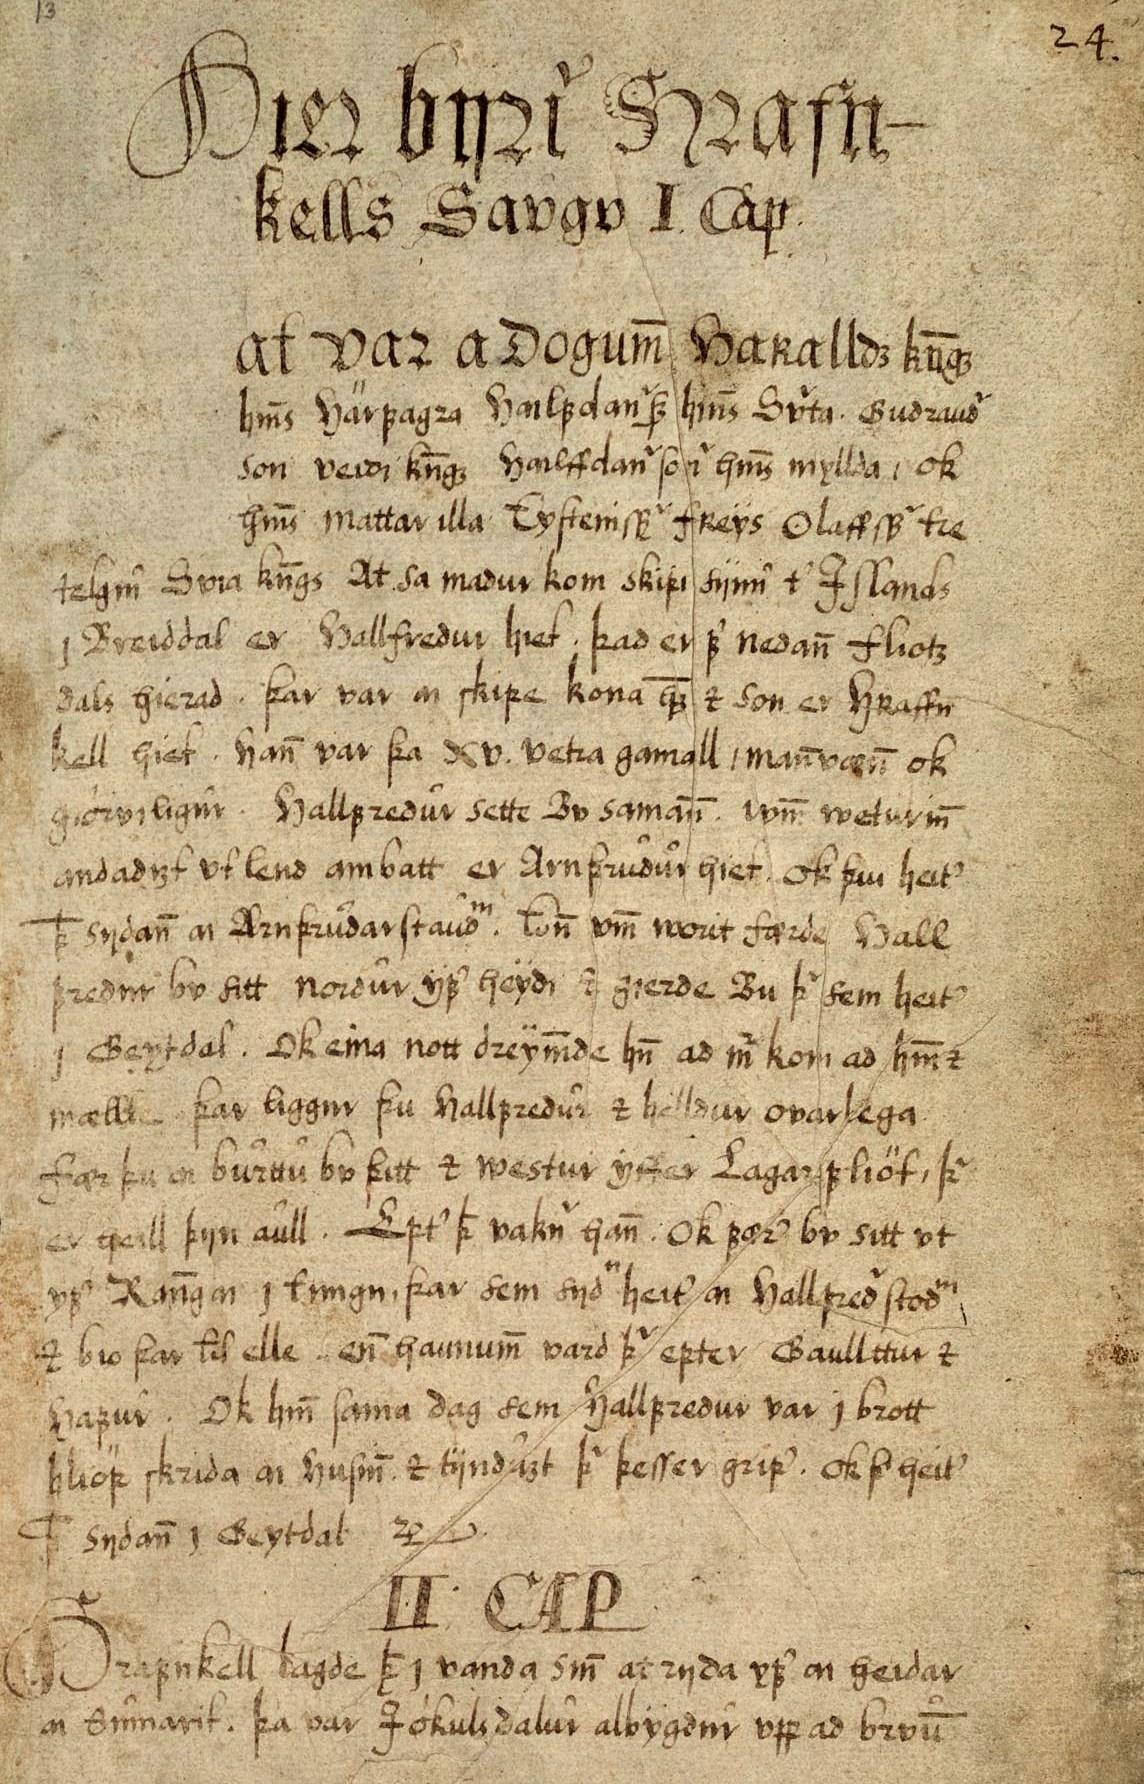 13
24.
Hier byrı̉ Hrafn-
kells Saugu I. Cap.
at var a Dogum̄ Haralldz kn̄gz
hm̄s Härfagra Hailfdanꝛ̉ hm̄s Sv̉ta. Gudraud̉
son veidi kn̄gz Hailffdan̉ son̉ hm̄s myllda, ok
hm̄s mattar illa Eysteinss̉ freÿs Olaffss̉ tre
telgiu Svia kn̄gs At sa madur kom skipi sijnu t̉ Jslands
j Breiddal er Hallfredur hiet. þad er f̉ nedan̄ fliotz
dals hierad. þar var ai skipe kona hs̄ ⁊ son er Hraffn
kell hiet. Han̄ var þa XV. vetra gamall, man̄væn̄ ok
giörviligur. Hallfredur sette Bv saman̄. Um̄ weturin̄
andadizt vtlend ambatt er Arnþrudur hiet. Ok þui heit̉
þ̄ sijdan̄ ai Arnþrudarstaudᵐ. En̄ vm̄ worit færde Hall
fredur bv sitt nordur yf̉ heÿdi ⁊ gierde Bu þ̉ sem heit̉
j Geytdal. Ok eina nott dreÿm̄de hn̄ ad m̉ kom ad hm̄ ⁊
mællte þar liggur þu Hallfredur ⁊ helldur ovarlega
fær þu ai burttu bv þitt ⁊ westur ÿffer Lagarfliöt, þ̉
er heill þijn aull. Ept̉ þ̄ vakn̉ han̄. Ok fær̉ bv sitt vt
yf̉ Ran̄gai j tungu, þar sem sijdⁿ heit̉ ai Hallfred̉stodᵐ
⁊ bio þar til elle. en̄ haunum̄ vard þ̉ epter Gaullttur ⁊
hafur. Ok hin̄ sama dag sem Hallfredur var j brott
hliöp skrida ai husin̄. ⁊ tijnduzt þ̉ þesser grip̉. Ok þ̉ heit̉
þ̄ sijdan̄ j Geytdal
II CAP
Hrafnkell lagde þ̄ j vanda sin̄ at rijda yf̉ ai heidar
ai sumarit. þa var Jökulsdalur albygdur vpp ad bru̇m̄